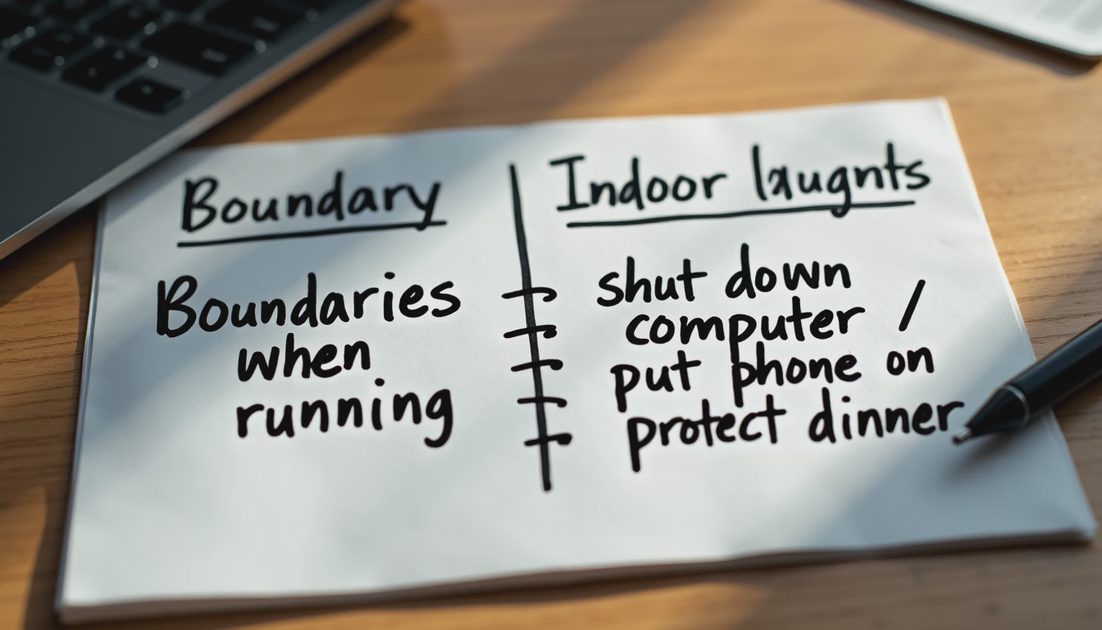 Boundary
Indoor
Boundaries
when
running
shut down
computer /
put phone on
protect dinner